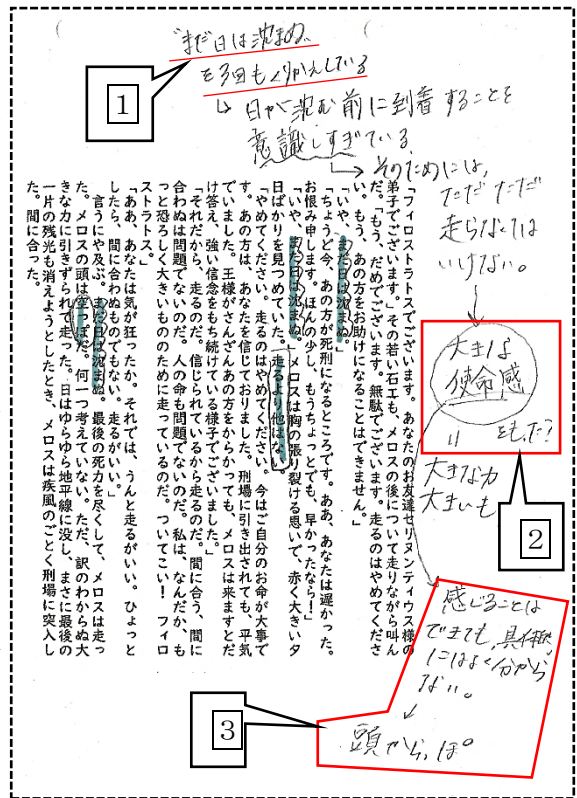 “まだ日は沈まぬ”
を3回もくりかえしている
↳日が沈む前に到着することを
意識しすぎている
↳そのためには、
ただただ
走らなくては
いけない。
1
大きな
使命感
をもった?
=
大きな力
大きいも
2
感じることは
できても、具体的
にはよく分から
ない。
↓
頭からっぽ。
3
「フィロストラトスでございます。あなたのお友達セリヌンティウス様の
弟子でございます。」その若い石工も、メロスの後について走りながら叫ん
だ。「もう、だめでございます。無駄でございます。走るのはやめてくださ
い。もう、あの方をお助けになることはできません。」
「いや、まだ日は沈まぬ。」
「ちょうど今、あの方が死刑になるところです。ああ、あなたは遅かった。
お恨み申します。ほんの少し、もうちょっとでも、早かったなら！」
「いや、まだ日は沈まぬ。」メロスは胸の張り裂ける思いで、赤く大きい夕
日ばかりを見つめていた。走るより他はない。
「やめてください。走るのはやめてください。今はご自分のお命が大事で
す。あの方は、あなたを信じておりました。刑場に引き出されても、平気
でいました。王様がさんざんあの方をからかっても、メロスは来ますとだ
け答え、強い信念をもち続けている様子でございました。」
「それだから、走るのだ。信じられているから走るのだ。間に合う、間に
合わぬは問題でないのだ。人の命も問題でないのだ。私は、なんだか、も
っと恐ろしく大きいもののために走っているのだ。ついてこい！　フィロ
ストラトス。」
「ああ、あなたは気が狂ったか。それでは、うんと走るがいい。ひょっと
したら、間に合わぬものでもない。走るがいい。」
言うにや及ぶ。まだ日は沈まぬ。最後の死力を尽くして、メロスは走っ
た。メロスの頭は空っぽだ。何一つ考えていない。ただ、訳のわからぬ大
きな力に引きずられて走った。日はゆらゆら地平線に没し、まさに最後の
一片の残光も消えようとしたとき、メロスは疾風のごとく刑場に突入し
た。間に合った。